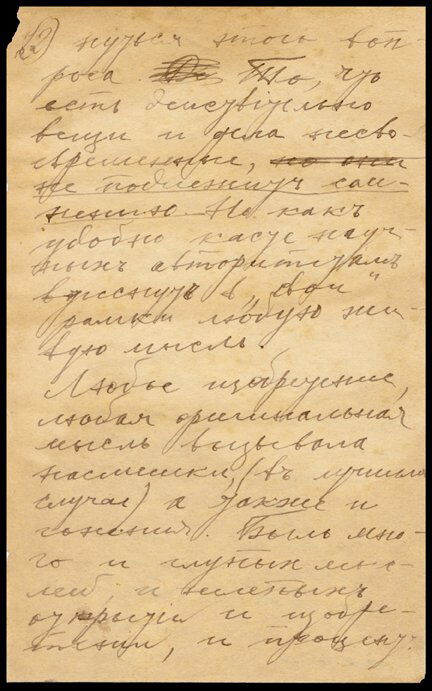 22) нуться этого воп
роса. То, что
есть действительно
вещи и дела несво-
евременные, но они
не подлежитъ сом-
нению. Но какъ
удобно касте науч-
ныхъ авторитетамъ
втиснуть в „свои"
рамки любую жи-
вую мысль.
Любое изобретение,
любая оригинальная
мысль вызывала
насмешки, (въ лучшем
случае) а также и
гонения. Былъ мно-
го и глупыхъ мыс-
лей, и нелепыхъ
открытий и изобре-
тений, и процент